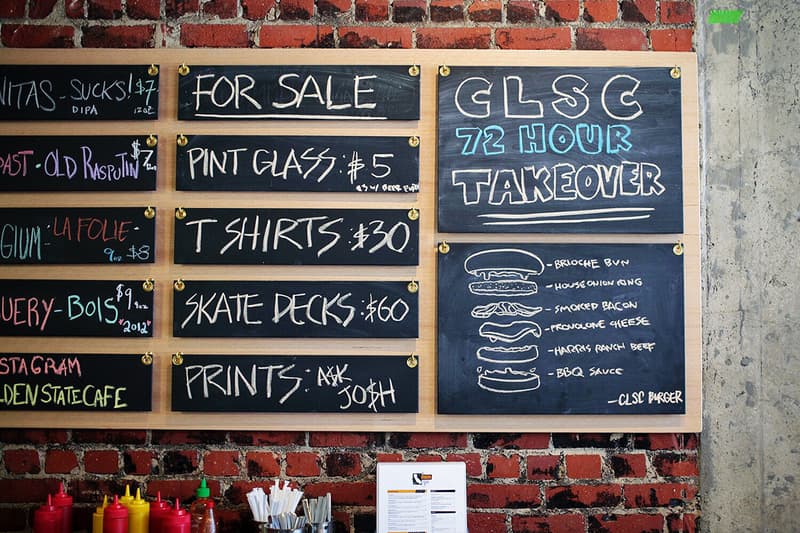 NITAS-SUCKS! $7
DIPA 12oz
AST-OLD RASPUTIN $7
GIUM:-LA FOLIE-
9oz $8
UERY-BOIS $9 9oz
"2012"
STAGRAM
LDENSTATECAFE
FOR SALE
PINT GLASS: $5
$3 W/ BEER
T SHIRTS: $30
SKATE DECKS: $60
PRINTS: A$K
JO$H
CLSC
72 HOUR
TAKEOVER
-BRIOCHE BUN
-HOUSE ONION RING
-SMOKED BACON
-PROVOLONE CHEESE
-HARRIS RANCH BEEF
-BBQ SAUCE
-CLSC BURGER